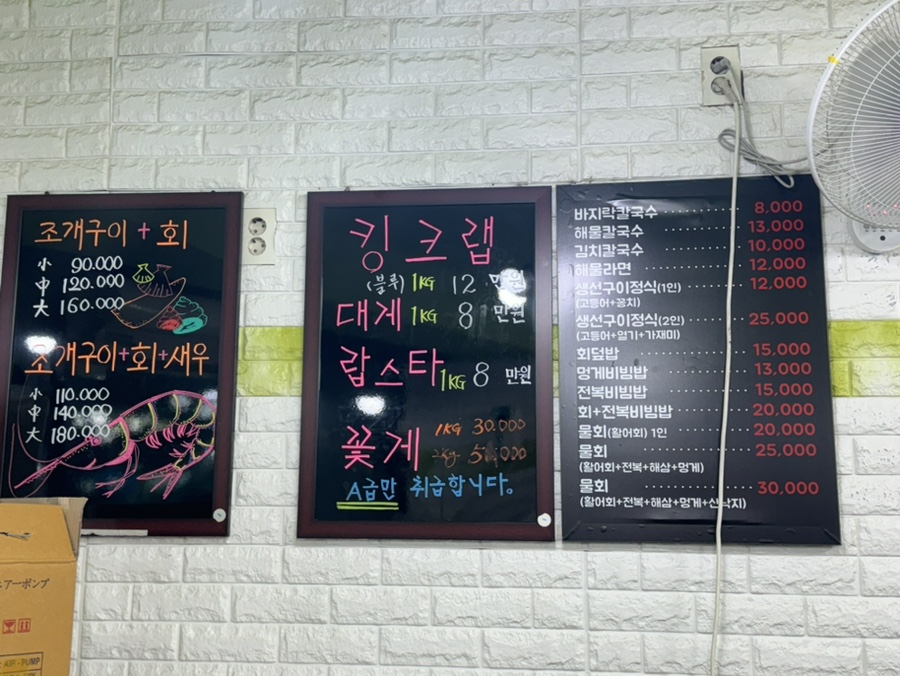 조개구이 + 회
小 90.000
中 120.000
大 160.000
조개구이+회+새우
小 110.000
中 140.000
大 180.000
킹크랩
(블루) 1KG 12 만원
대게 1KG 8 만원
랍스타 1KG 8 만원
꽃게 1KG 30.000
2kg
A급만 취급합니다.
바지락칼국수 8,000
해물칼국수 13,000
김치칼국수 10,000
해물라면 12,000
생선구이정식(1인) 12,000
(고등어+꽁치)
생선구이정식(2인) 25,000
(고등어+열기+가재미)
회덮밥 15,000
멍게비빔밥 13,000
전복비빔밥 15,000
회+전복비빔밥 20,000
물회(활어회) 1인 20,000
물회 25,000
(활어회+전복+해삼+멍게)
물회 30,000
(활어회+전복+해삼+멍게+산낙지)
エアーポンプ
AIR-PUMP